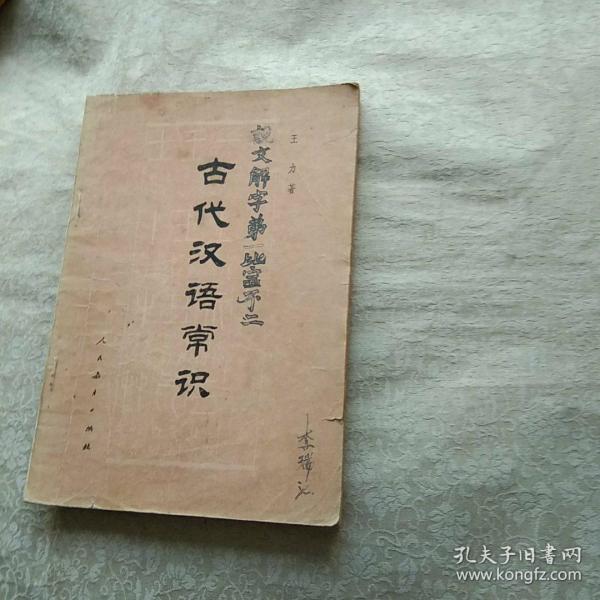 王力著
说文解字第一
古代汉语常识
人民教育出版社
孔夫子旧书网
www.kongfz.com